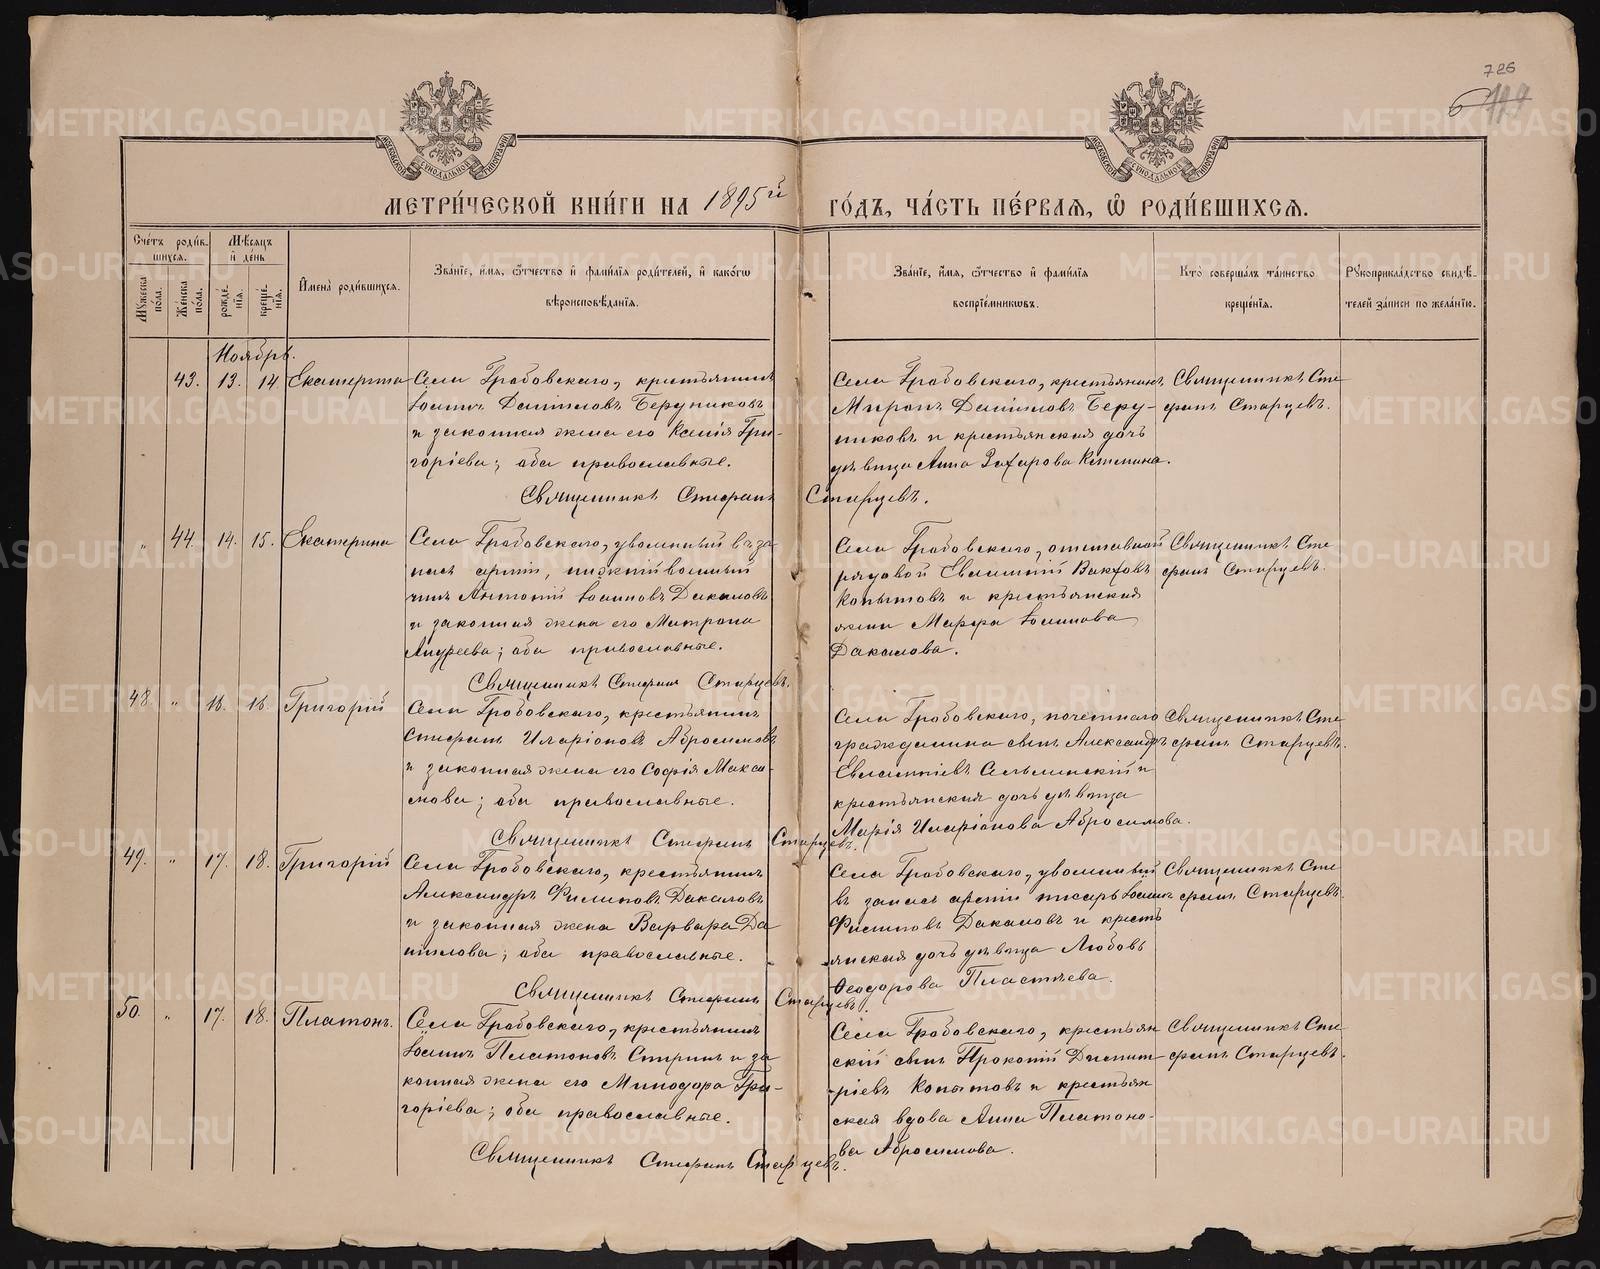 726
МЕТРИ́ЧЕСКОЙ КНИ́ГИ НА 1895й ГО́ДЪ, ЧА́СТЬ ПЕ́РВАЯ, Ѡ РОДИ́ВШИХСЯ.
Сче́тъ роди́в-
шихся.
Му́жеска
по́ла.
Же́нска
по́ла.
Мѣ́сяцъ
и҆ де́нь
рожде́-
нїя.
креще́-
нїя.
И҆мена̀ роди́вшихся.
Зва́нїе, и҆́мя, ѻ҆́тчество и҆ фами́лїя роди́телей, и҆ како́гѡ
вѣроисповѣ́данїя.
Зва́нїе, и҆́мя, ѻ҆́тчество и҆ фами́лїя
воспрїе́мникѡвъ.
Кто̀ соверша́лъ та́инство
креще́нїя.
Рꙋкоприкла́дство свидѣ́-
телей за́писи по жела́нїю.
Ноябрь.
43. 13. 14. Екатерина
Села Грабовскаго, крестьянинъ
Іоаннъ Даніиловъ Берупиковъ
и законная жена его Ксенія Гри-
горіева; оба православные.
Священникъ Стефанъ Старцевъ.
Села Грабовскаго, крестьянинъ
Миронъ Даніиловъ Беру-
пиковъ и крестьянская дочь
дѣвица Анна Захарова
Священникъ Сте-
фанъ Старцевъ.
" 44. 14. 15. Екатерина
Села Грабовскаго, уволенный въ за-
пасъ арміи, нижній военный
чинъ Антоній Іоанновъ Дакаловъ
и законная жена его Матрона
Андреева; оба православные.
Священникъ Стефанъ Старцевъ.
Села Грабовскаго, отставной
рядовой Евлампій
Копытовъ и крестьянская
жена Марфа Іоаннова
Дакалова.
Священникъ Сте-
фанъ Старцевъ.
48 " 16. 16. Григорій
Села Грабовскаго, крестьянинъ
Стефанъ Иларіоновъ Абросимовъ
и законная жена его Софія Макси-
мова; оба православные.
Священникъ Стефанъ Старцевъ.
Села Грабовскаго, почетнаго
гражданина сынъ Александръ
Евлампіевъ и
крестьянская дочь дѣвица
Марія Иларіонова Абросимова.
Священникъ Сте-
фанъ Старцевъ.
49. " 17. 18. Григорій
Села Грабовскаго, крестьянинъ
Александръ Филиповъ Дакаловъ
и законная жена Варвара Да-
ніилова; оба православные.
Священникъ Стефанъ Старцевъ.
Села Грабовскаго, уволенный
въ запасъ арміи писарь Іоаннъ
Филиповъ Дакаловъ и кресть-
янская дочь дѣвица Любовь
Ѳеодорова Пластѣева.
Священникъ Сте-
фанъ Старцевъ.
50. " 17. 18. Платонъ.
Села Грабовскаго, крестьянинъ
Іоаннъ Платоновъ и за-
конная жена его Минодора Гри-
горіева; оба православные.
Священникъ Стефанъ Старцевъ.
Села Грабовскаго, крестьян-
скій сынъ Прокопій Димит-
ріевъ Копытовъ и крестьян-
ская вдова Анна Платоно-
ва Абросимова.
Священникъ Сте-
фанъ Старцевъ.
METRIKI.GASO-URAL.RU